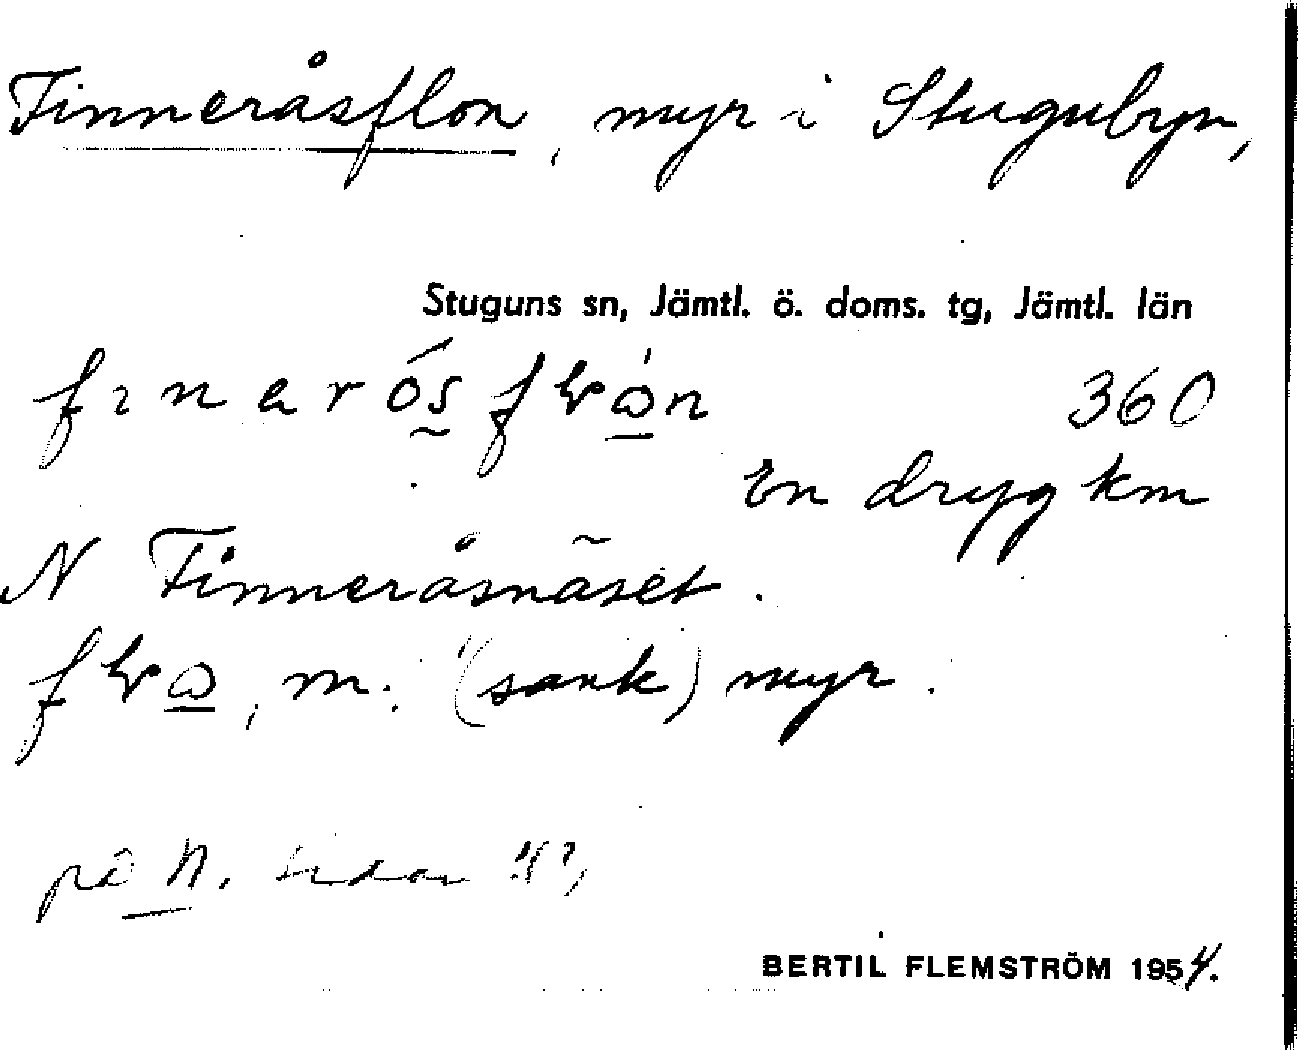 Finneråsflon, myr i Stugubyn,
Stuguns sn, Jämtl. ö. doms. tg, Jämtl. län
360
En dryg km
N Finneråsnäset.
m. (sank) myr.
på N. sidan
BERTIL FLEMSTRÖM 1954.